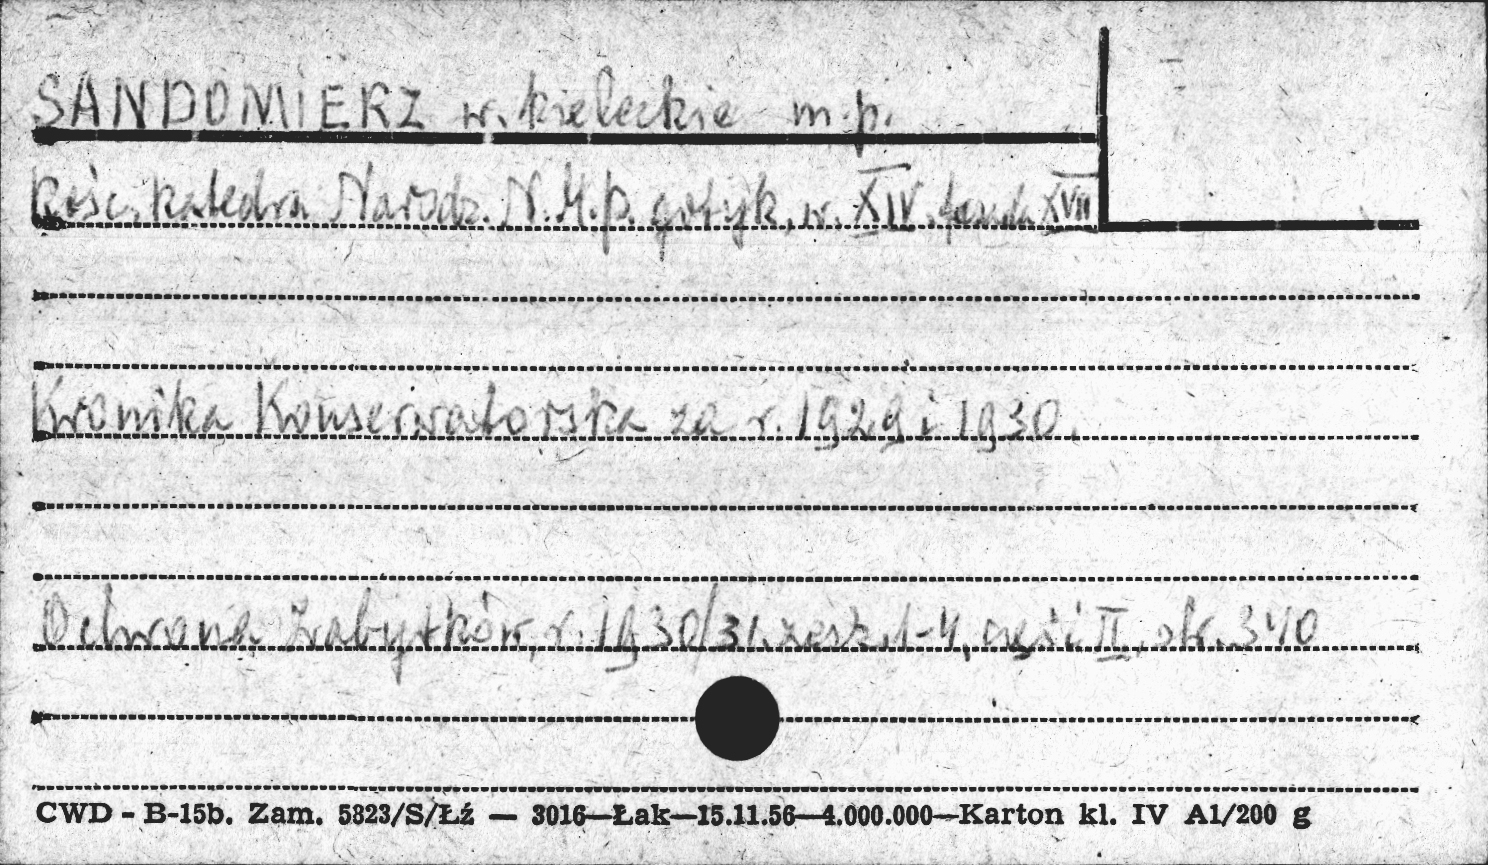 SANDOMIERZ w. kieleckie m.p.
Kośc. katedra Narodz. N.M.P. gotyk. w. XIV. fasada XVII
Kronika Konserwatorska za r. 1929 i 1930.
Ochrona Zabytków, r. 1930/31. zesz. 1-4, część II, str. 340
CWD - B-15b. Zam. 5823/S/Łź — 3016—Łak—15.11.56—4.000.000—Karton kl. IV A1/200 g